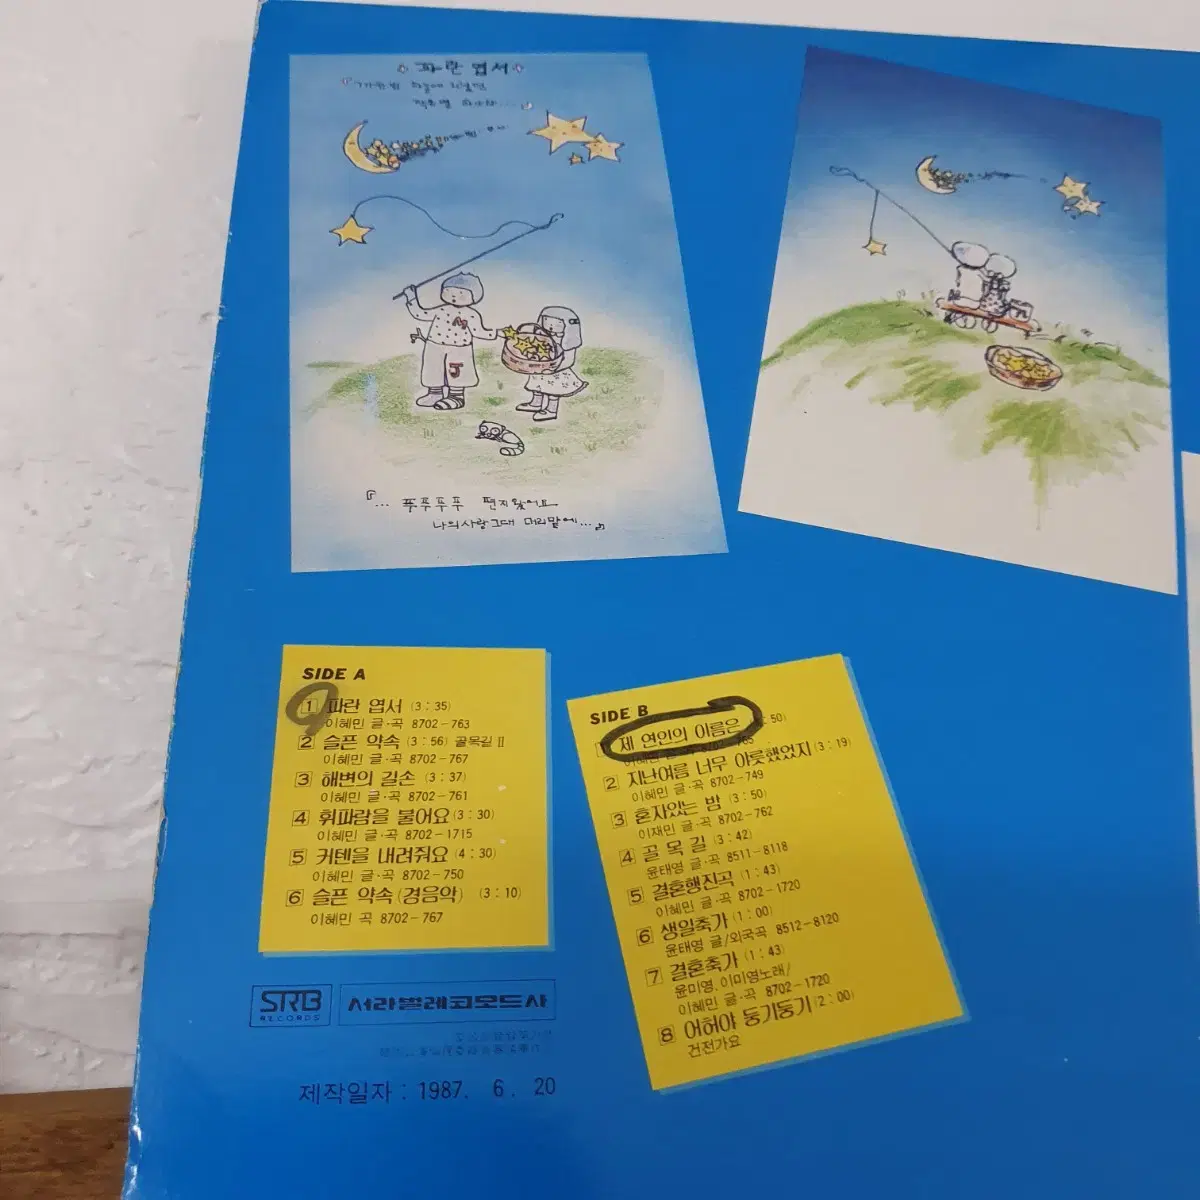 파란 엽서
『... 푹푹푹푹 편지왔어요
나의사랑그대 머리맡에...』
SIDE A
1 파란 엽서 (3 : 35)
이혜민 글·곡 8702-763
2 슬픈 약속 (3 : 56) 골목길 II
이혜민 글·곡 8702-767
3 해변의 길손 (3 : 37)
이혜민 글·곡 8702-761
4 휘파람을 불어요 (3 : 30)
이혜민 글·곡 8702-1715
5 커텐을 내려줘요 (4 : 30)
이혜민 글·곡 8702-750
6 슬픈 약속(경음악) (3 : 10)
이혜민 곡 8702-767
SIDE B
제 연인의 이름은 : 50)
2 지난여름 너무 아룻했었지 (3 : 19)
이혜민 글·곡 8702-749
3 혼자있는 밤 (3 : 50)
이재민 글·곡 8702-762
4 골목길 (3 : 42)
윤태영 글·곡 8511-8118
5 결혼행진곡 (1 : 43)
이혜민 글·곡 8702-1720
6 생일축가 (1 : 00)
윤태영 글/외국곡 8512-8120
7 결혼축가 (1 : 43)
윤미영, 이미영노래/
이혜민 글·곡 8702-1720
8 어허야 둥기둥기 (2 : 00)
건전가요
SRB RECORDS 서라벌레코드사
제작일자 : 1987. 6. 20